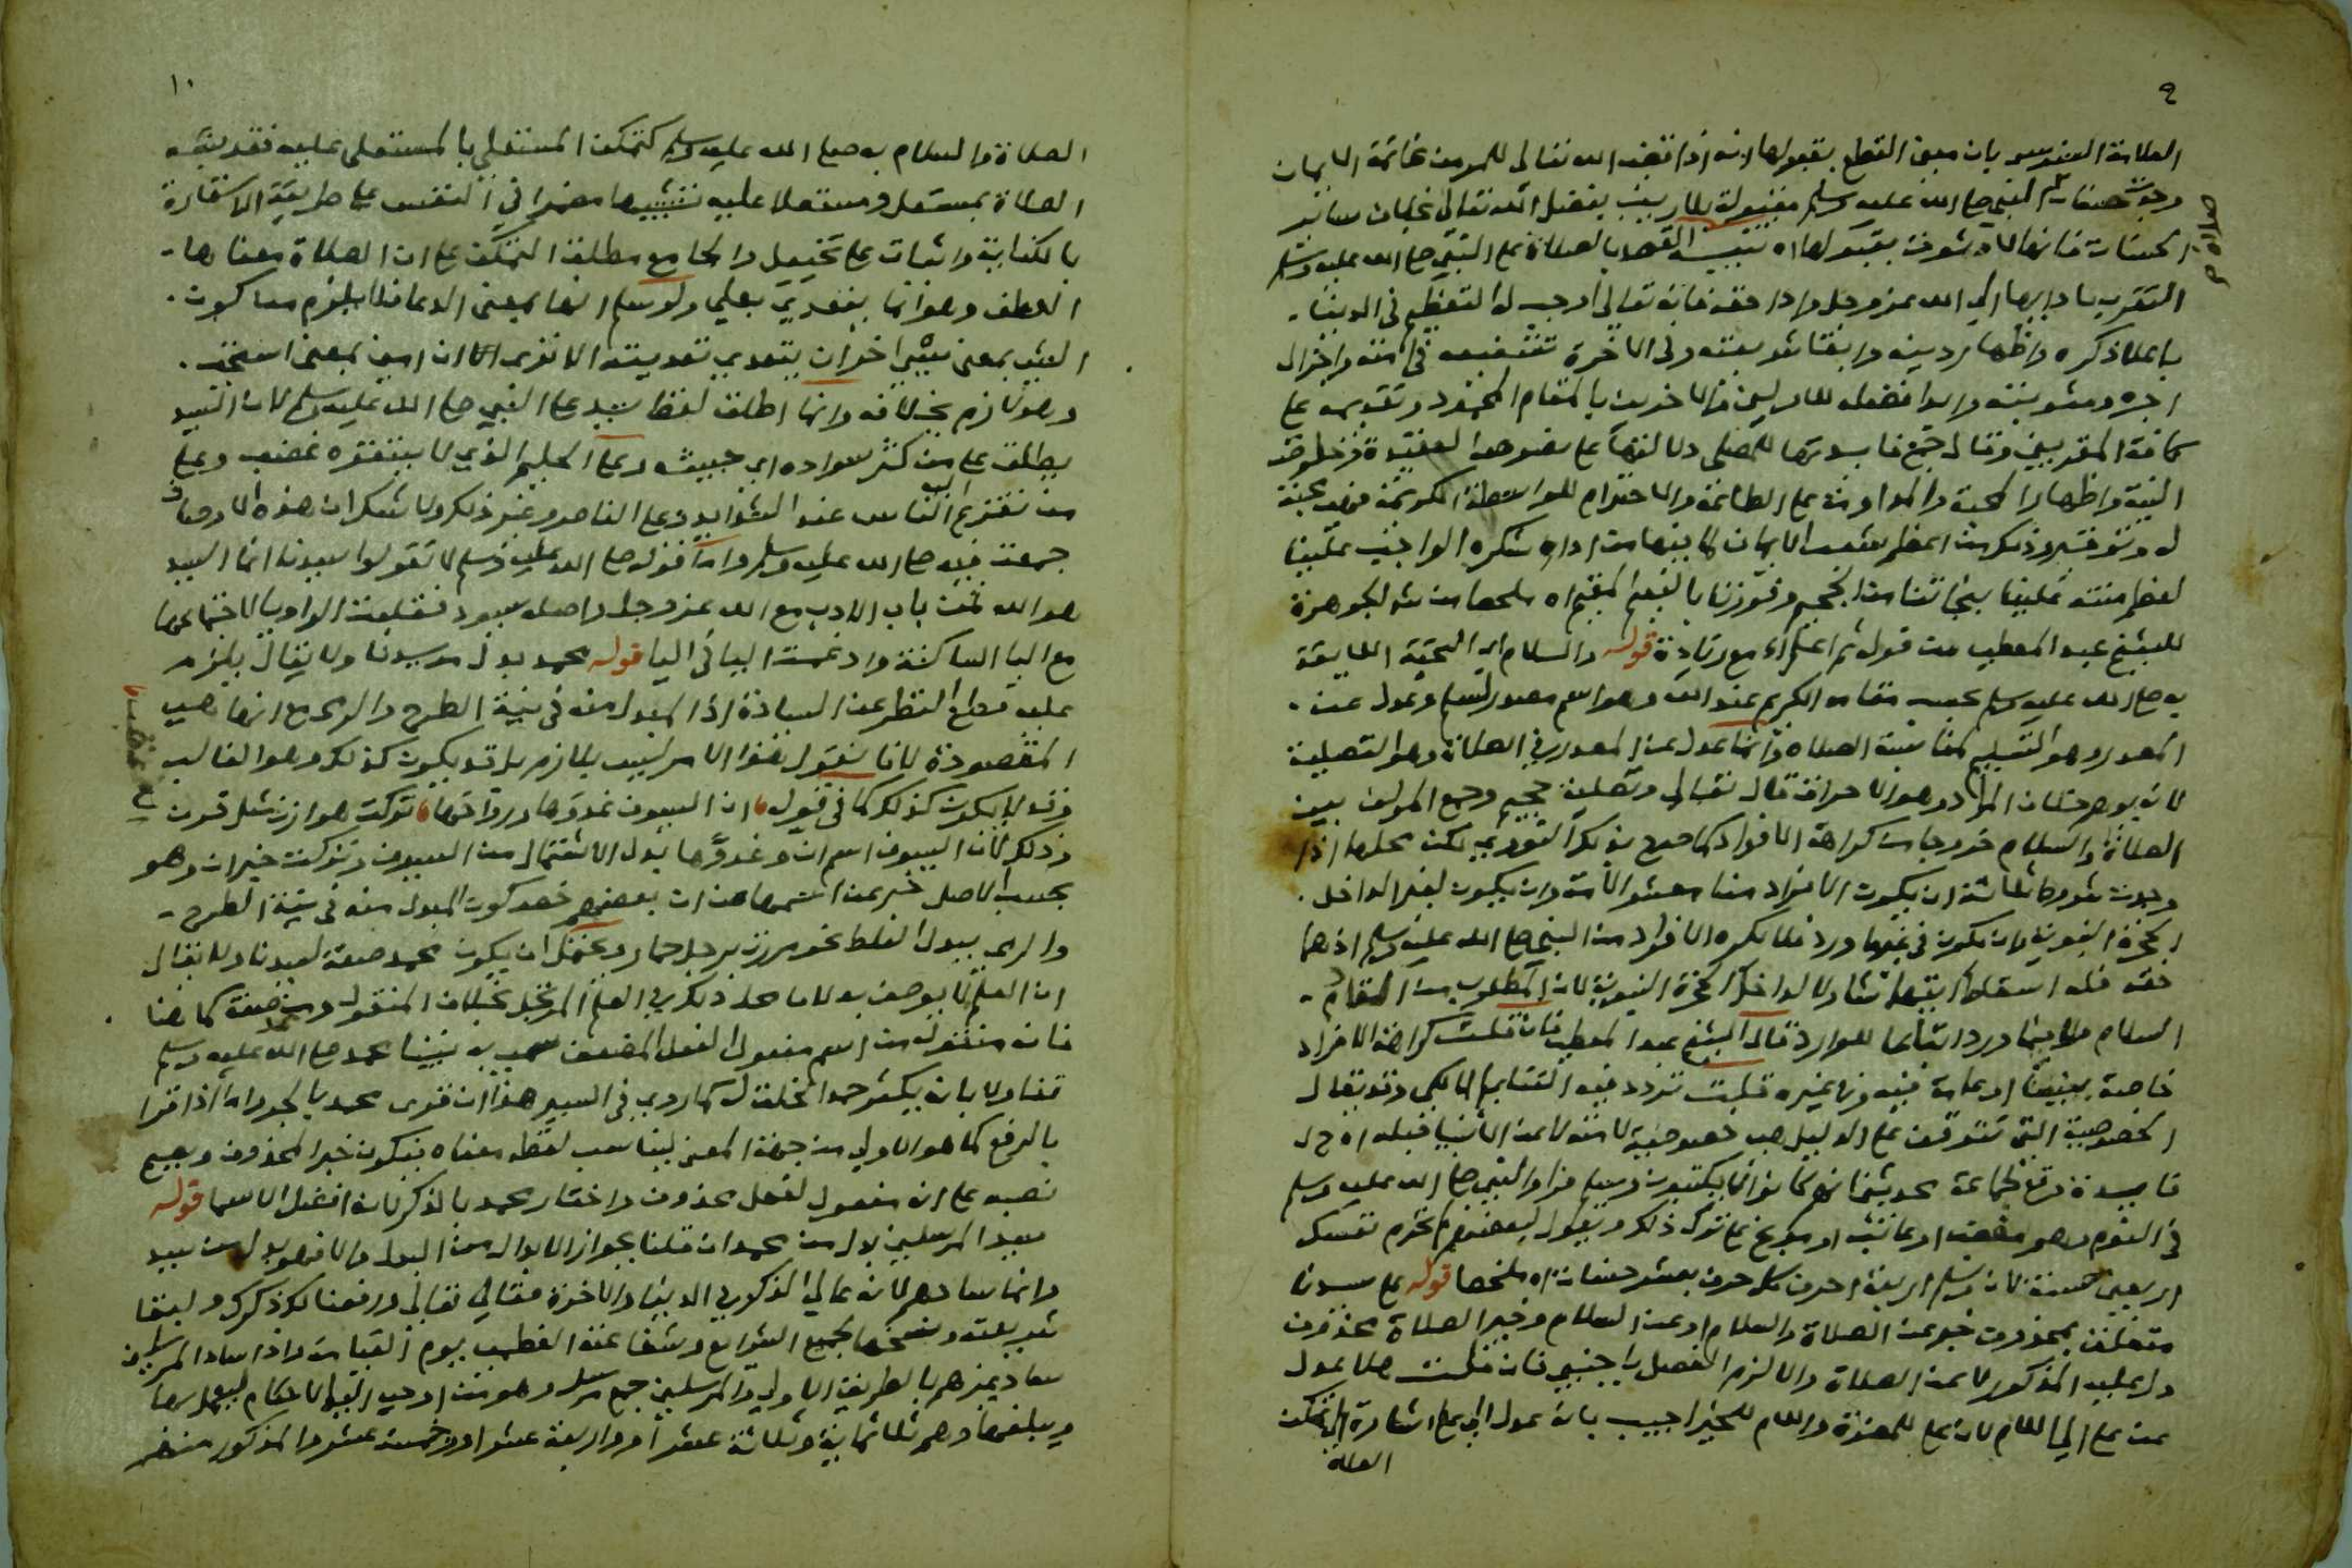 ٩
العلامة السنوسي بان معنى القطع بقبولها انه اذا قضى الله تعالى للمرء من خاتمة الايمان
وجد حسنات النبي صلى الله عليه وسلم مقبولة بلا ريب بفضل الله تعالى بخلاف سائر
الحسنات فانها لا وثوق بقبولها اه تنبيه القصد بالصلاة على النبي صلى الله عليه وسلم
التقرب بادائها الى الله عز وجل واداء حقه فانه تعالى اوجب له التعظيم في الدنيا
باعلاء ذكره واظهار دينه وابقاء شريعته وفي الاخرة تشفيعه في امته واجزال
اجره ومثوبته وابداء فضله للاولين والاخرين بالمقام المحمود وتقديمه على
كافة المقربين وقال جمع فائدتها للمصلي دلالتها على نصوع العقيدة وخلوص
النية واظهار المحبة والمداومة على الطاعة والاحترام للواسطة الكريمة فهي محبة
له وتوقير وذلك من اعظم شعب الايمان لما فيها من اداء شكره الواجب علينا
لعظم منته علينا بنجاتنا من الجحيم وفوزنا بالنعيم المقيم اه ملخصا من شرح الجوهرة
للشيخ عبد المعطي من قوله ثم اعلم الخ مع زيادة قوله والسلام اي التحية اللائقة
به صلى الله عليه وسلم بحسب مقامه الكريم عند الله وهو اسم مصدر لسلم وعدل عن
المصدر وهو التسليم لمناسبة الصلاة وانما عدل عن المصدر في الصلاة وهو التصلية
لانه يوهم خلاف المراد وهو الاحراق قال تعالى وتصلية جحيم وجمع المؤلف بين
الصلاة والسلام خروجا من كراهة الافراد كما صرح بذلك النووي لكن محلها اذا
وجدت شروط ثلاثة ان يكون الافراد منا معشر الامة وان يكون لغير الداخل
الحجرة النبوية وان يكون في غير ما ورد فلا يكره الافراد من النبي صلى الله عليه وسلم اذ هما
حقه فله اسقاط ايهما شاء ولا لداخل الحجرة النبوية لان المطلوب من المقام
السلام ولا فيما ورد اتباعا للوارد قال الشيخ عبد المعطي فان قلت كراهة الافراد
خاصة بنبينا او عامة فيه وفي غيره قلت تردد فيه الشتابي المالكي وقد يقال
الخصوصية التي تتوقف على الدليل هي خصوصية لامته لا عن الانبياء قبله اه ح ل
فائدة وقع لجماعة محدثين انهم كانوا لا يكتبون وسلم فراوا النبي صلى الله عليه وسلم
في النوم وهو منقبض او عاتب او موبخ على ترك ذلك ويقول لبعضهم لم تحرم نفسك
اربعين حسنة لان وسلم اربعة احرف كل حرف بعشر حسنات اه ملخصا قوله على سيدنا
متعلق بمحذوف خبر عن الصلاة والسلام او عن السلام وخبر الصلاة محذوف
دل عليه المذكور لا عن الصلاة والا لزم الفصل باجنبي فان قلت هلا عدل
عن على الى اللام لان على للمضرة واللام للخير اجيب بانه عدل الى على اشارة الى تمكن
الصلاة
١٠
الصلاة والسلام به صلى الله عليه وسلم كتمكن المستعلي بالمستعلى عليه فقد شبه
الصلاة بمستعل ومستعلا عليه تشبيها مضمرا في النفس على طريقة الاستعارة
بالكناية واثبات على تخييل والجامع مطلق التمكن على ان الصلاة معناها
العطف وهو انما يتعدى بعلى ولو سلم انها بمعنى الدعاء فلا يلزم من كون
الشيء بمعنى شيء اخر ان يتعدى تعديته الا ترى ان امين بمعنى استجب
وهو لازم بخلافه وانما اطلق لفظ سيد على النبي صلى الله عليه وسلم لان السيد
يطلق على من كثر سواده اي جيشه وعلى الحليم الذي لا يستفزه غضب وعلى
من تفزع الناس اليه عند الشدايد وعلى الناصر وغير ذلك ولا شك ان هذه الاوصاف
جمعت فيه صلى الله عليه وسلم واما قوله صلى الله عليه وسلم لا تقولوا سيدنا انما السيد
هو الله فمن باب الادب مع الله عز وجل واصله سيود فقلبت الواو ياء لاجتماعها
مع الياء الساكنة وادغمت الياء في الياء قوله محمد بدل من سيدنا ولا يقال يلزم
عليه قطع النظر عن السيادة اذ المبدل منه في نية الطرح والرمي مع انها هي
المقصودة لانا نقول هذا الامر ليس بلازم بل قد يكون كذلك وهو الغالب
وقد لا يكون كذلك كما في قوله ان السيوف غدوها ورواحها تركت هوازن مثل قرن
وذلك لان السيوف اسم ان وغدوها بدل الاشتمال من السيوف وتركت خبر ان وهو
بحسب الاصل خبر عن اسمها على ان بعضهم خص كون المبدل منه في نية الطرح
والرمي ببدل الغلط نحو مررت برجل حمار ويحتمل ان يكون محمد صفة لسيدنا ولا يقال
ان العلم لا يوصف به لان محل ذلك في العلم المرتجل بخلاف المنقول من صفة كما هنا
فانه منقول من اسم مفعول الفعل المضعف سمي به نبينا محمد صلى الله عليه وسلم
تفاؤلا بان يكثر حمد الخلق له كما روي في السير هذا ان قرئ محمد بالجر واما اذا قرئ
بالرفع كما هو الاولى من جهة المعنى ليناسب لفظه معناه فيكون خبرا لمحذوف ويصح
نصبه على انه مفعول لفعل محذوف واختار محمد بالذكر لانه افضل الاسماء قوله
سيد المرسلين بدل من محمد ان قلنا بجواز الابدال من البدل والا فهو بدل من سيد
وانما سادهم لانه عالي الذكر في الدنيا والاخرة فقال تعالى ورفعنا لك ذكرك ولبقاء
شريعته ونسخها لجميع الشرايع وشفاعته العظمى يوم القيامة واذا ساد المرسلين
ساد غيرهم بالطريق الاولى والمرسلين جمع مرسل وهو من اوحي اليه بالاحكام ليعمل بها
ويبلغها وهم ثلاثمائة وثلاثة عشر او واربعة عشر او وخمسة عشر والمذكور منهم